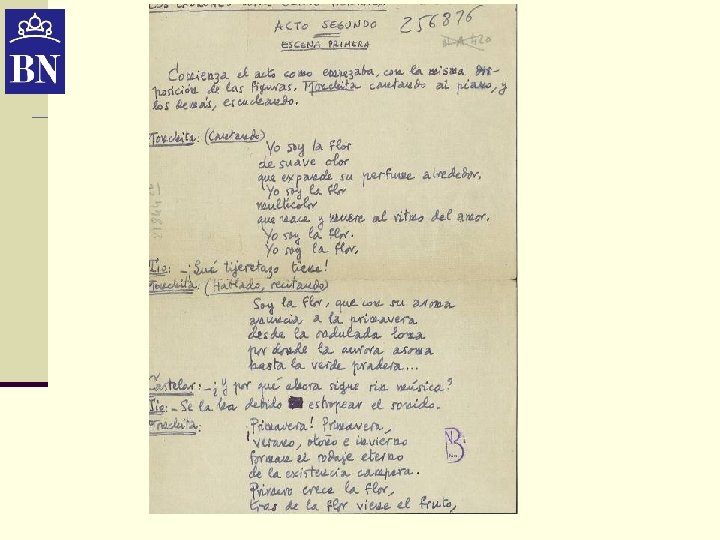 BN
ACTO SEGUNDO
256876
ESCENA PRIMERA
Comienza el acto como empezaba, con la misma dis-
posición de las figuras. Monchita cantando al piano, y
los demás, escuchando.
Monchita: (Cantando)
Yo soy la flor
de suave olor
que expande su perfume alrededor.
Yo soy la flor
multicolor
que nace y muere al ritmo del amor.
Yo soy la flor.
Yo soy la flor,
Tio: -¡Qué tijeretazo tiene!
Monchita: (Hablado, recitando)
Soy la flor, que con su aroma
anuncia a la primavera
desde la ondulada loma
por donde la aurora asoma
hasta la verde pradera...
Castelar: -¿Y por qué ahora sigue sin música?
Tio: - Se la ha debido estropear el sonido.
Monchita:
¡Primavera! Primavera,
verano, otoño e invierno
forman el rodaje eterno
de la existencia campera.
Primero crece la flor,
tras de la flor viene el fruto,